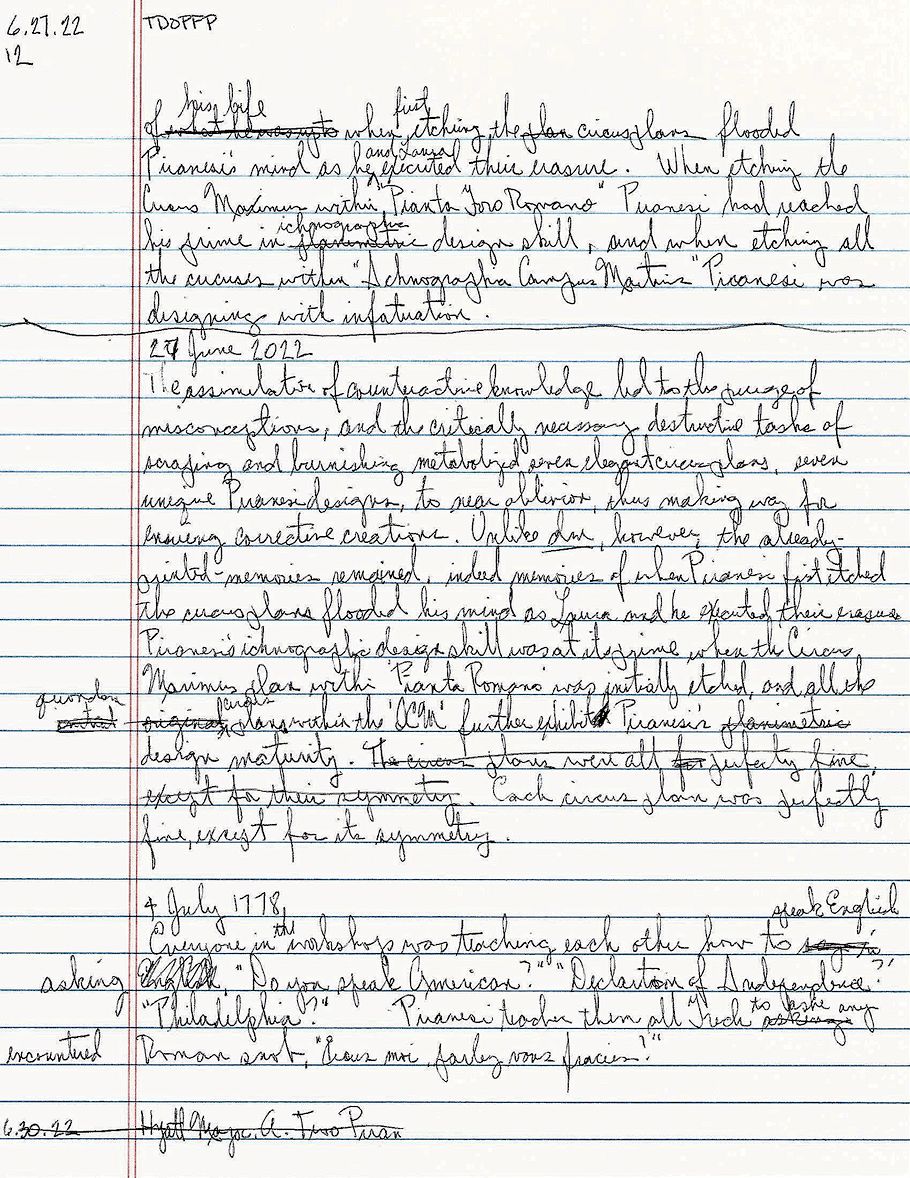 6.27.22 TDOPFP
12
his life first
of what he was up to when etching, the plan circus plans flooded
and Laura
Piranesi's mind as he executed their erasure. When etching the
Circus Maximus within "Pianta Foro Romano" Piranesi had reached
ichnographic
his prime in planimetric design skill, and when etching all
the circuses within "Ichnographia Campus Martius" Piranesi was
designing with infatuation.
27 June 2022
The assimilation of counteractive knowledge led to the purge of
misconceptions, and the critically necessary destructive tasks of
scraping and burnishing metabolized seven elegant circus plans, seven
unique Piranesi designs, to near oblivion, thus making way for
ensuing corrective creations. Unlike dm, however, the already-
printed-memories remained, indeed memories of when Piranesi first etched
the circus plans flooded his mind as Laura and he executed their erasure
Piranesi's ichnographic design skill was at its prime when the Circus
Maximus plan within 'Pianta Romano was initially etched, and all the
quondam circus
original plans within the 'ICM' further exhibit Piranesi's planimetric
design maturity. The circus plans were all for perfectly fine,
except for their symmetry. Each circus plan was perfectly
fine, except for its symmetry.
4 July 1778
the speak English
Everyone in workshops was teaching each other how to say in
asking English, "Do you speak American?" "Declartion of Independence?"
to aske any
"Philadelphia?" Piranesi teaches them all Frech asking
encountered Roman snob, "Excus moi, parley vous fracies?"
6.30.22 Hyatt Mayor, A. Two Piran